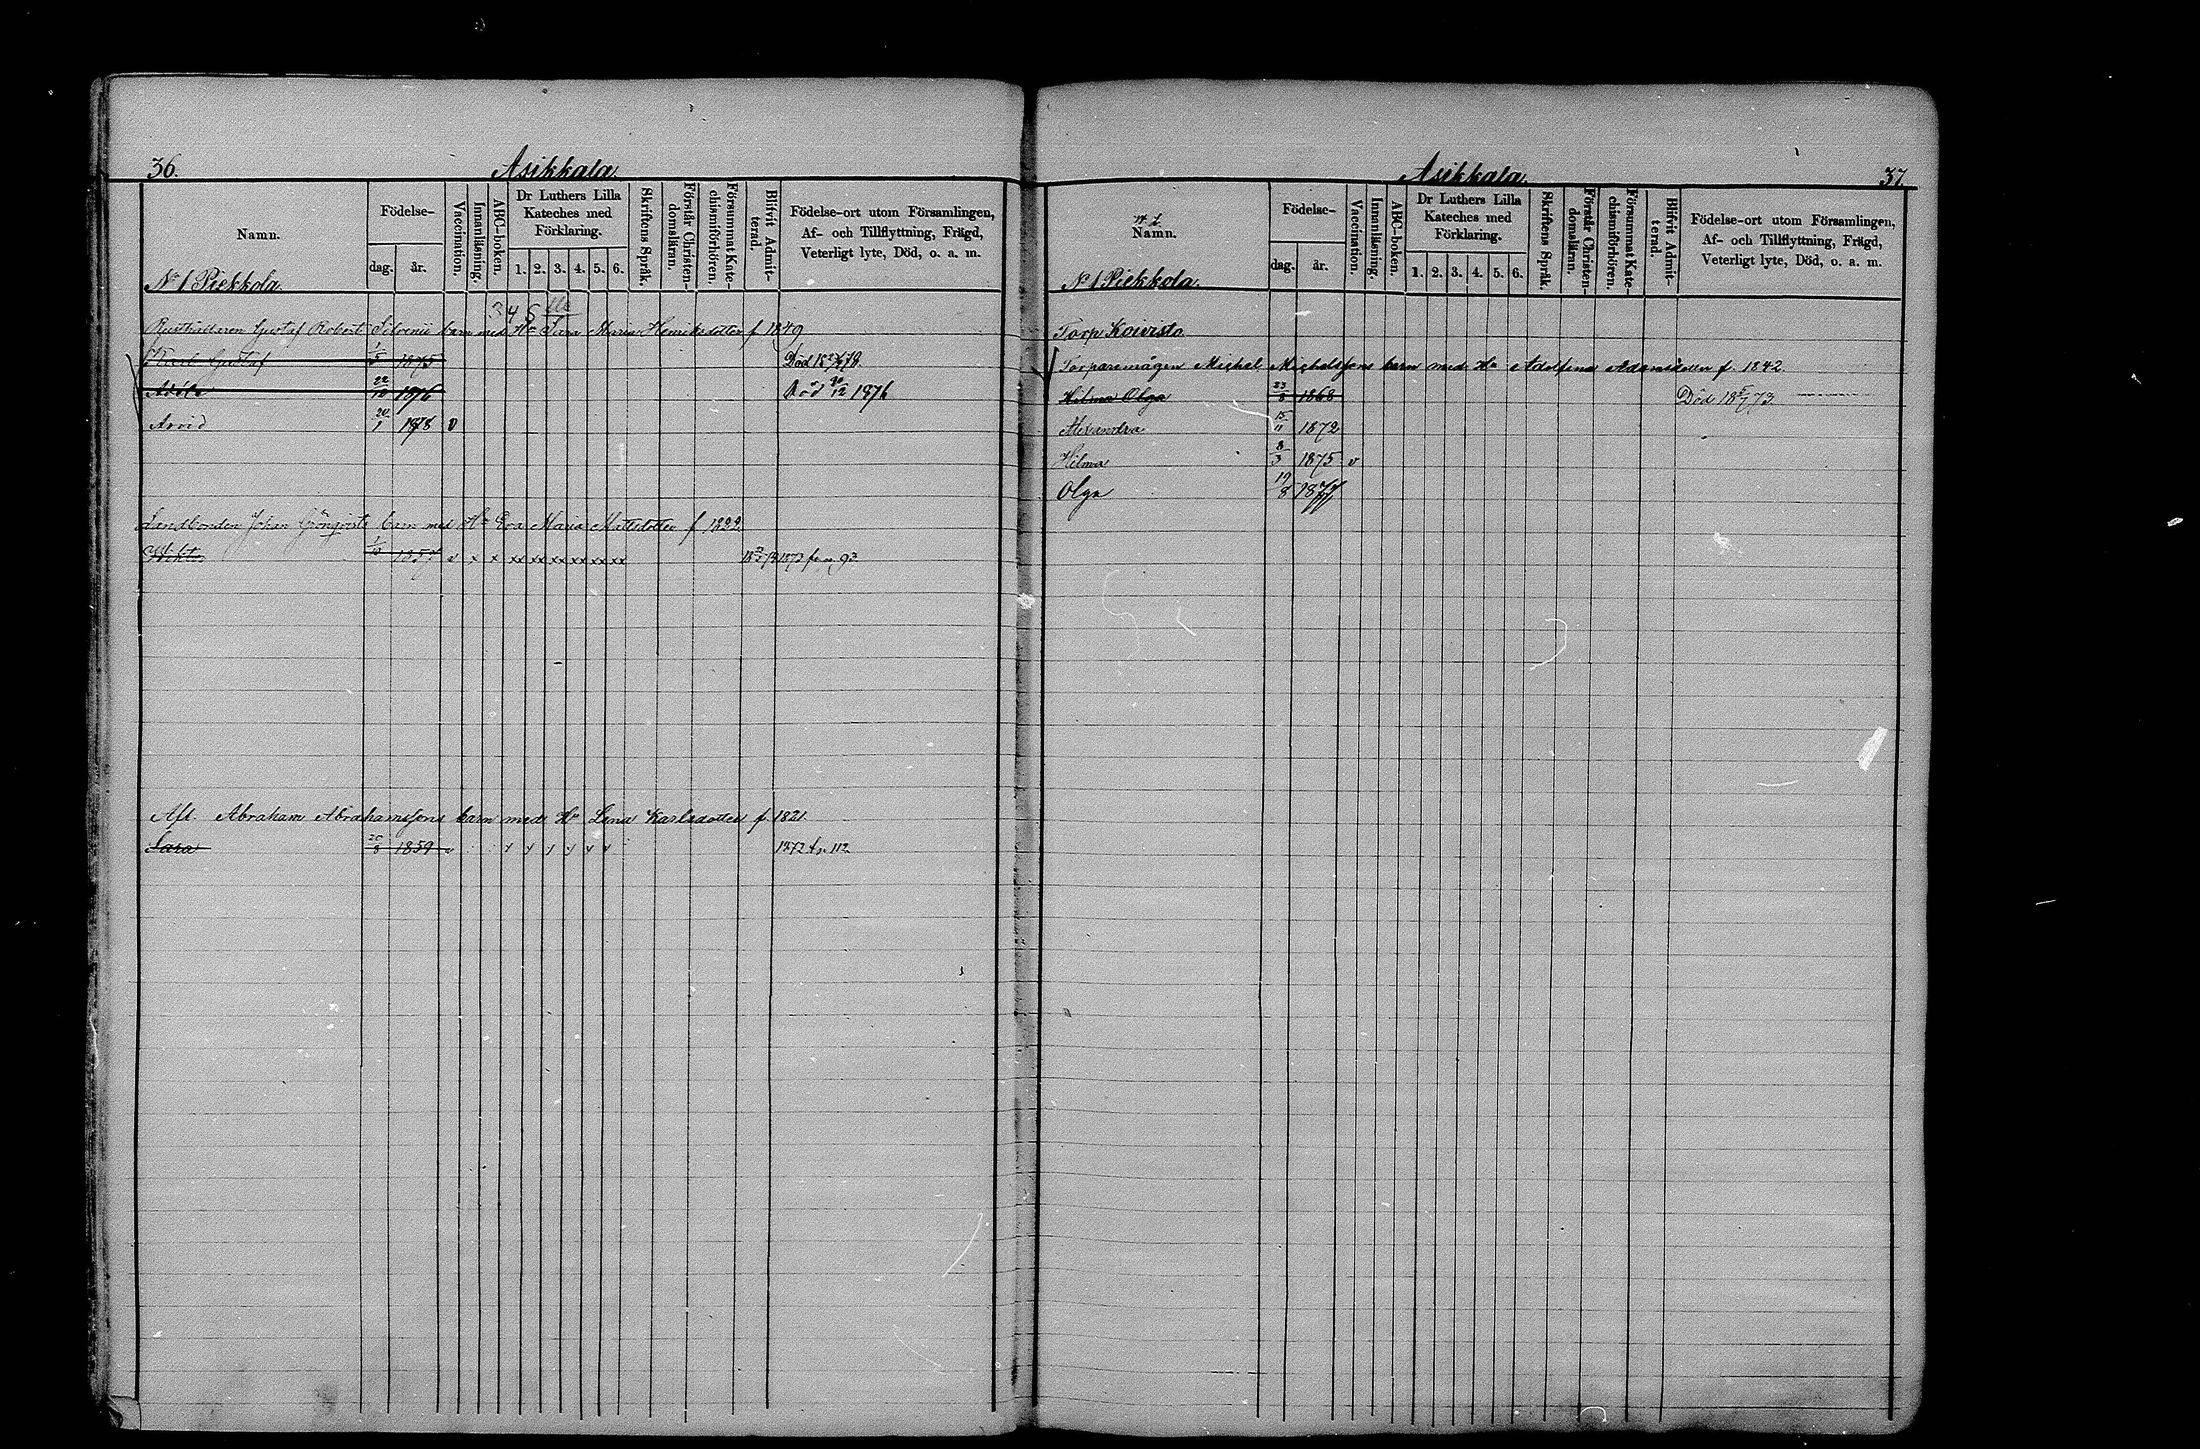 36.
Asikkala
Namn.
Födelse-
dag. år.
Vaccination.
Innanläsning.
ABC-boken.
Dr Luthers Lilla
Kateches med
Förklaring.
1. 2. 3. 4. 5. 6.
Skriftens Språk.
Förstår Christen-
domsläran.
Försummat Kate-
chismiförhören.
Blifvit Admit-
terad.
Födelse-ort utom Församlingen,
Af- och Tillflyttning, Frägd,
Veterligt lyte, Död, o. a. m.
N 1 Piekkola
3 4 5
Rusthållaren Gustaf Robert Silvenii barn med Hu Sara Maria Henriksdotter f 1849
Karl Gustaf 1/5 1875 Död
Adèle 22/10 1876 Död 30/12 1876
Arvid 20/1 1878 v
Landbonden Johan Grönqvists barn med Hu Eva Maria Mattsdotter f 1822
Wiktor 1/10 1857 v x x xx xx xx xx xx xx 1873 fr. n. 93
Afl. Abraham Abrahamssons barn med Hu Lena Karlsdotter f 1821
Sara 20/8 1859 v y y y y y y 1872 fr. 112
Asikkala
37.
Namn.
Födelse-
dag. år.
Vaccination.
Innanläsning.
ABC-boken.
Dr Luthers Lilla
Kateches med
Förklaring.
1. 2. 3. 4. 5. 6.
Skriftens Språk.
Förstår Christen-
domsläran.
Försummat Kate-
chismiförhören.
Blifvit Admit-
terad.
Födelse-ort utom Församlingen,
Af- och Tillflyttning, Frägd,
Veterligt lyte, Död, o. a. m.
N 1 Piekkola
Torp Koivisto
Torparemågen Michel Michelssons barn med Hu Adolfina Adamsdotter f. 1842
Hilma Olga 23/8 1868 Död
Alexandra 15/11 1872
Hilma 8/3 1875 v
Olga 19/8 1877